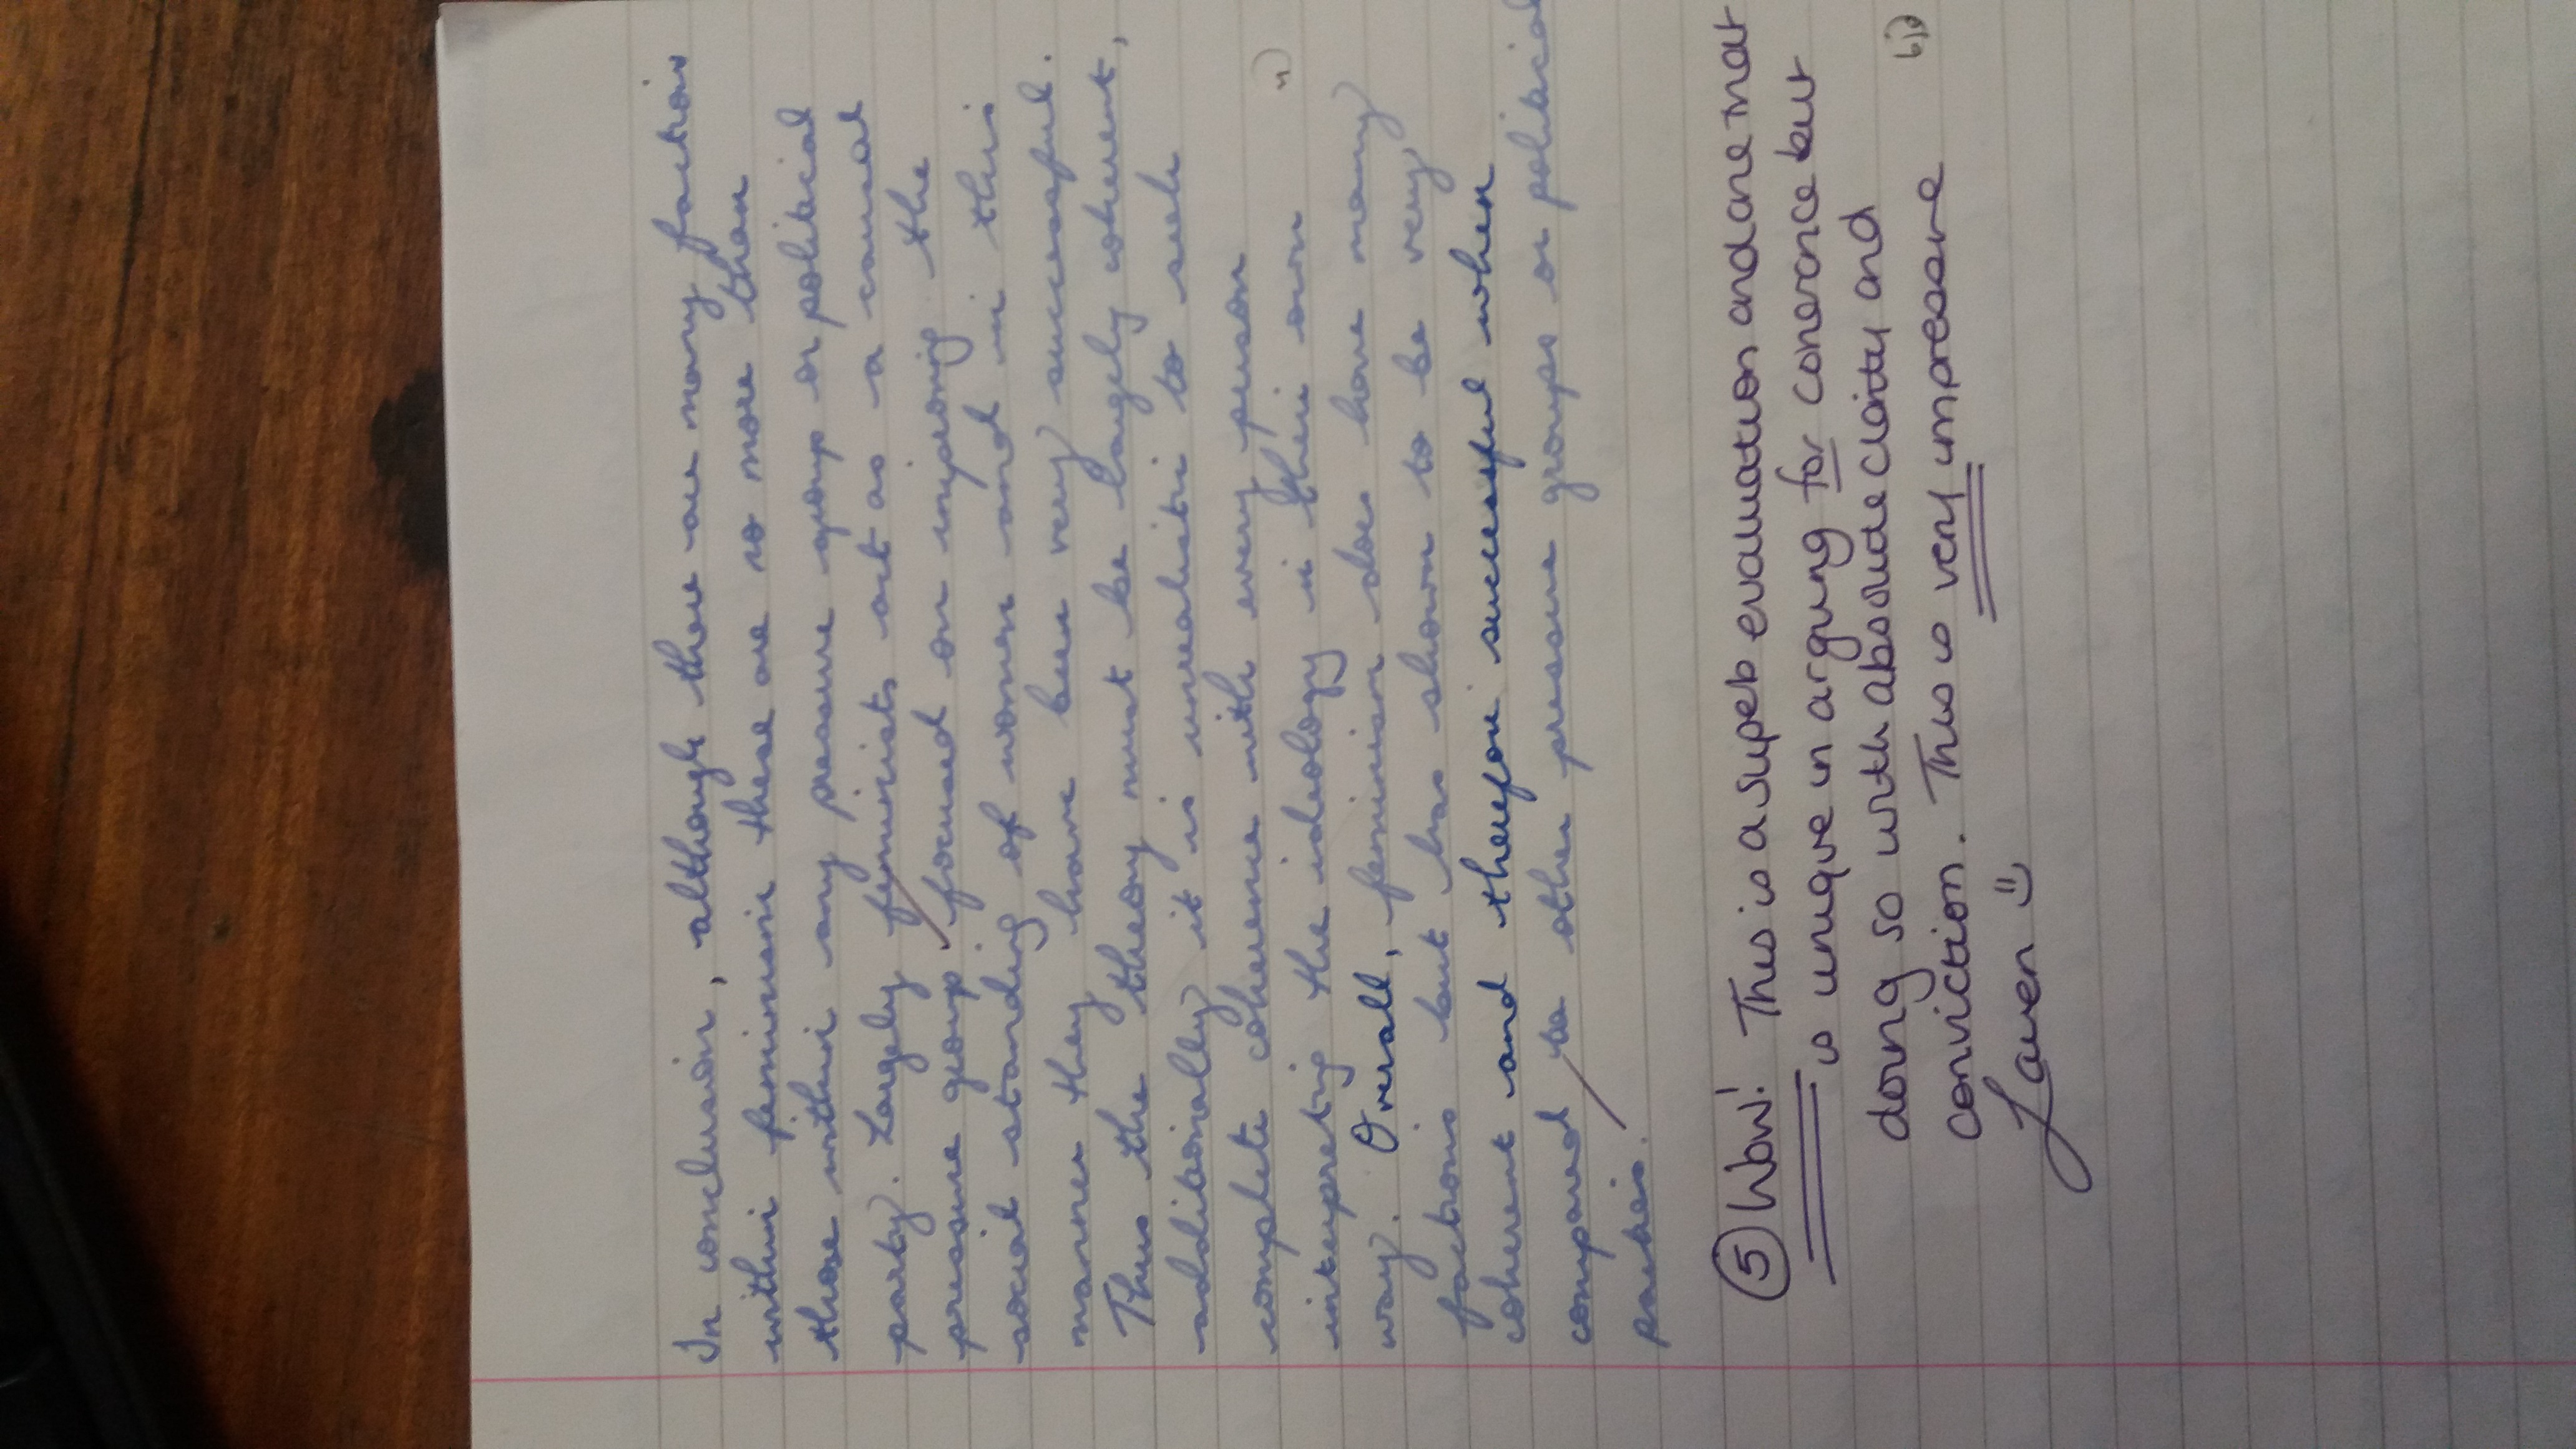 In conclusion, although there are many factions
within feminism these are no more than
those within any pressure group or political
party. Largely feminists act as a causal
pressure group, focused on improving the
social standing of women and in this
manner they have been very successful.
Thus the theory must be largely coherent,
additionally it is unrealistic to seek
complete coherence with every person
interpreting the ideology in their own
way. Overall, feminism does have many
factions but has shown to be very,
coherent and therefore successful when
compared to other pressure groups or political
parties.
5 Wow! This is a superb evaluation and one that
is unique in arguing for coherence but
doing so with absolute clarity and
conviction. This is very impressive
Lauren